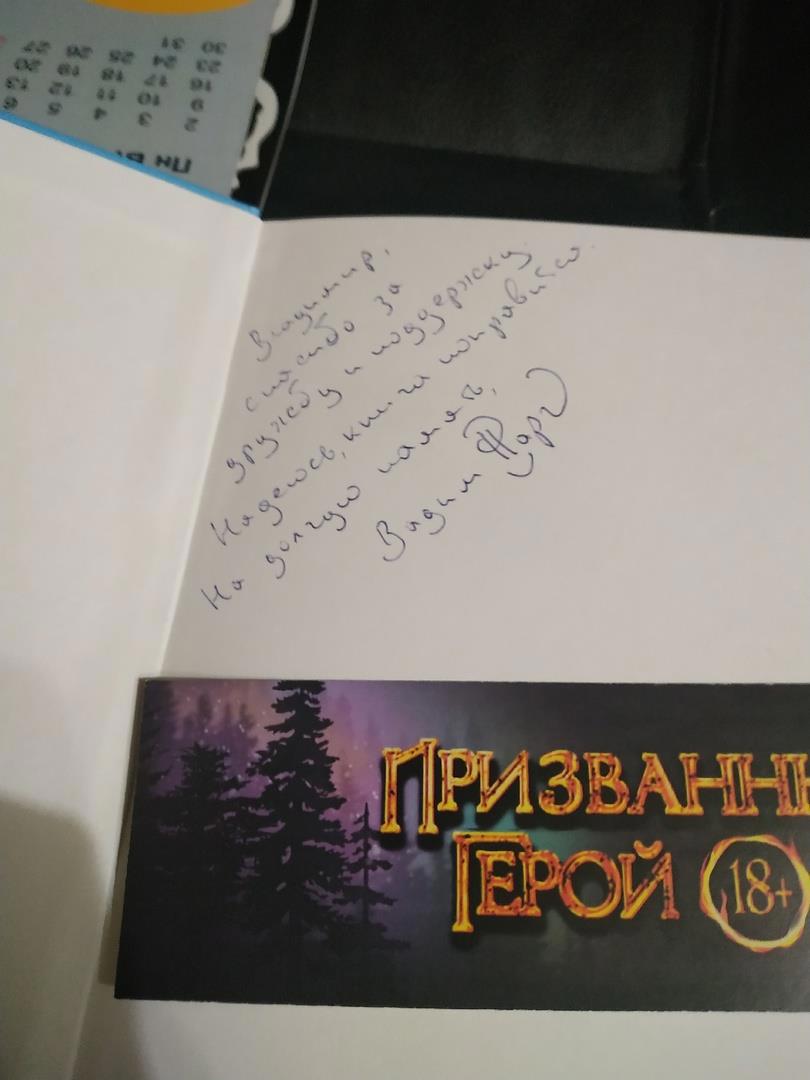 Пн В
2 3 4 5 6
9 10 11 12 13
16 17 18 19 20
23 24 25 26 27
30 31
Владимир,
спасибо за
дружбу и поддержку.
Надеюсь, книга понравится.
На долгую память,
Вадим Фарг
ПРИЗВАНН
ГЕРОЙ 18+